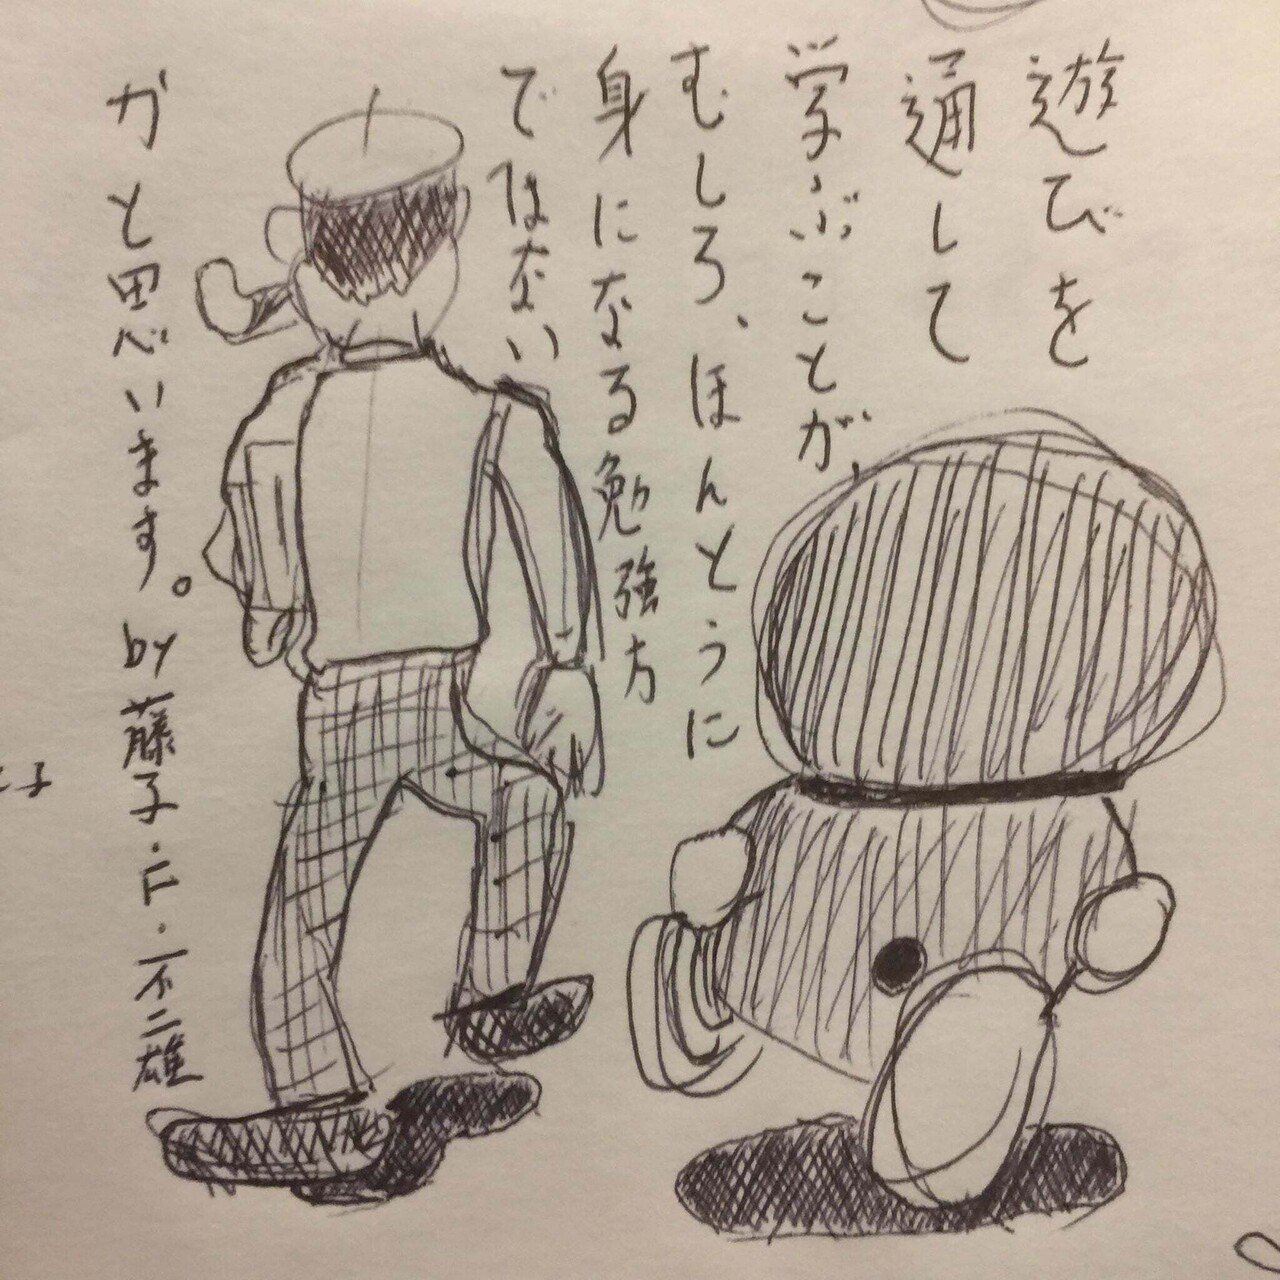 遊びを
通して
学ぶことが、
むしろ、ほんとうに
身になる勉強方
ではない
かと思います。by藤子・F・不二雄